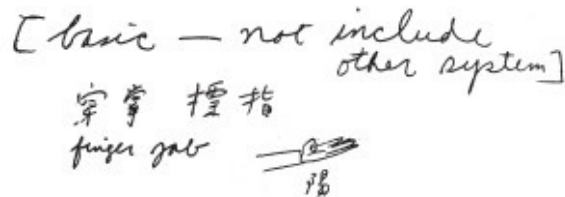 [basic — not include
other system]
穿掌 標指
finger jab
陽